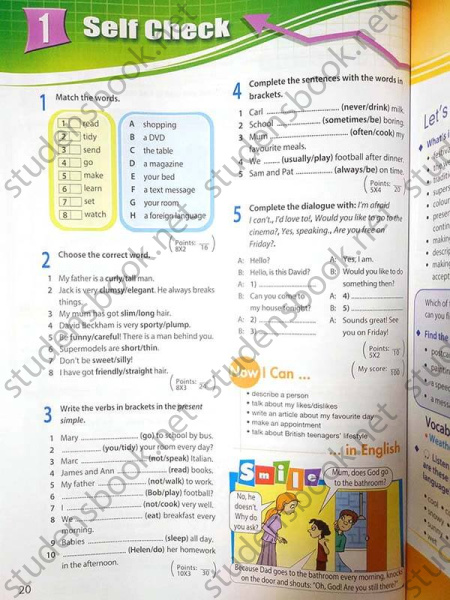 1 Self Check
1 Match the words.
1 read
2 tidy
3 send
4 go
5 make
6 learn
7 set
8 watch
A shopping
B a DVD
C the table
D a magazine
E your bed
F a text message
G your room
H a foreign language
Points: 8X2 16
2 Choose the correct word.
1 My father is a curly/tall man.
2 Jack is very clumsy/elegant. He always breaks
things.
3 My mum has got slim/long hair.
4 David Beckham is very sporty/plump.
5 Be funny/careful! There is a man behind you.
6 Supermodels are short/thin.
7 Don't be sweet/silly!
8 I have got friendly/straight hair.
Points: 8X3 24
3 Write the verbs in brackets in the present
simple.
1 Mary (go) to school by bus.
2 (you/tidy) your room every day?
3 Marc (not/speak) Italian.
4 James and Ann (read) books.
5 My father (not/walk) to work.
6 (Bob/play) football?
7 I (not/cook) very well.
8 We (eat) breakfast every
morning.
9 Babies (sleep) all day.
10 (Helen/do) her homework
in the afternoon.
Points: 10X3 30
20
4 Complete the sentences with the words in
brackets.
1 Carl (never/drink) milk.
2 School (sometimes/be) boring.
3 Mum (often/cook) my
favourite meals.
4 We (usually/play) football after dinner.
5 Sam and Pat (always/be) on time.
Points: 5X4 20
5 Complete the dialogue with: I'm afraid
I can't., I'd love to!, Would you like to go to the
cinema?, Yes, speaking., Are you free on
Friday?.
A: Hello?
B: Hello, is this David?
A: 1)
B: Can you come to
my house tonight?
A: 2)
B: 3)
A: Yes, I am.
B: Would you like to do
something then?
A: 4)
B: 5)
A: Sounds great! See
you on Friday!
Points: 5X2 10
My score: 100
Now I Can ...
• describe a person
• talk about my likes/dislikes
• write an article about my favourite day
• make an appointment
• talk about British teenagers' lifestyle
... in English
Smile
Mum, does God go
to the bathroom?
No, he
doesn't.
Why do
you ask?
Because Dad goes to the bathroom every morning, knocks
on the door and shouts: "Oh, God! Are you still there?"
Let's
Find the
Vocab
Listen
are these
language
studensbook.net